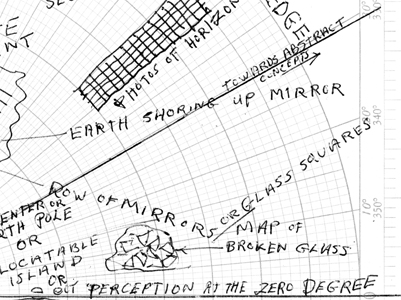 DGE
PHOTOS OF HORIZON
TOWARDS ABSTRACT
CONCEPTS
EARTH SHORING UP MIRROR
340°
350°
ROW OF MIRRORS OR GLASS SQUARES
ENTER OR
RTH POLE
OR
LOCATABLE
ISLAND
OR
MAP OF
BROKEN GLASS
PERCEPTION AT THE ZERO DEGREE